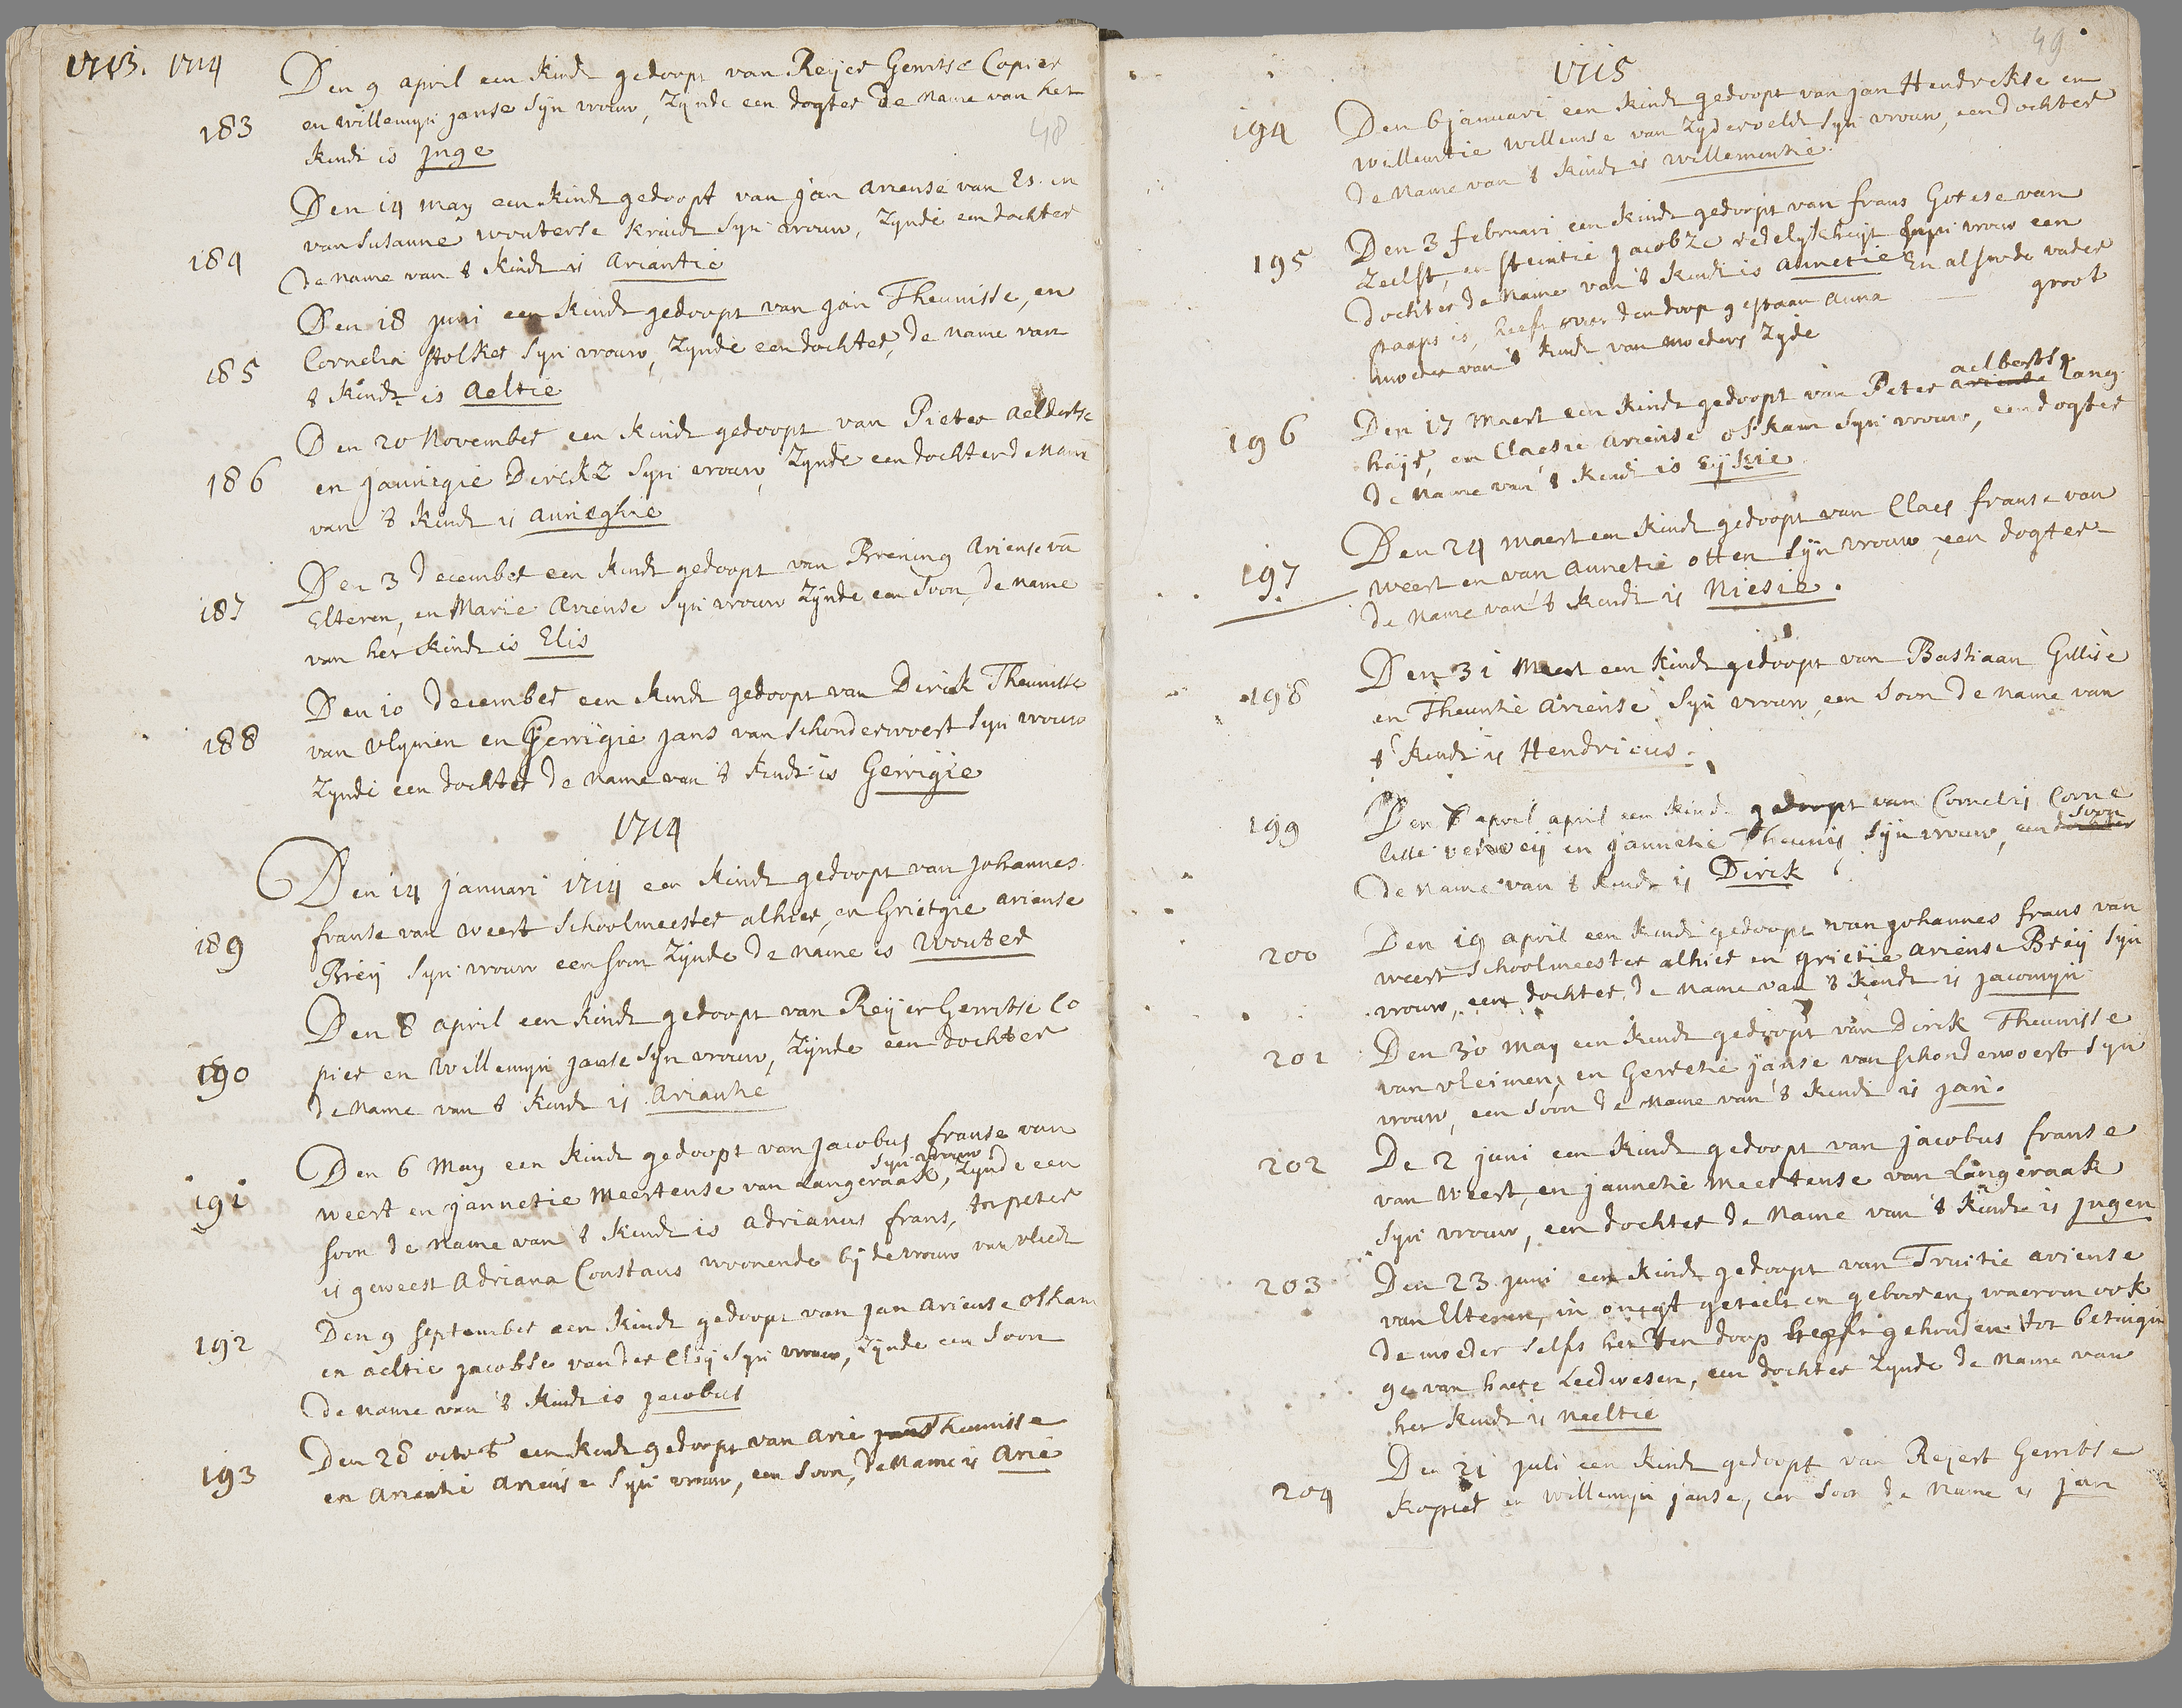 1713. 1714
Den 9 april een kindt gedoopt van Reyer Gerritse Copier
en willemyn janse Syn vrouw, Zynde een dogter de name van het
183
kindt is Jnge
48
Den 14 may een kindt gedoopt van Jan ariense van Es. en
van Susanne wouterse kruidt Syn vrouw, Zynde een dochter
184
de name van 't kindt is Ariantie
Den 18 juni een kindt gedoopt van Jan Theunisse, en
Cornelia Stolker Syn vrouw, Zynde een dochter, de name van
185
't kindt is Aeltie
Den 20 November een kindt gedoopt van Pieter aelbertse
186
en Jannigie Dirckz Syn vrouw, Zynde een dochter de Name
van 't kindt is annighie
Den 3 december een kindt gedoopt van Brening Ariense van
187
Elteren, en Marie Ariense Syn vrouw Zynde een Soon, de name
van het kindt is Elis
Den 10 december een kindt gedoopt van Dirick Theunisse
188
van vlymen en Gerrigie jans van Schonderwoert Syn vrouw
Zynde een dochter de name van 't kindt is Gerrigie
1714
Den 14 januari 1714 een kindt gedoopt van Johannes
franse van weert Schoolmeester alhier, en Grietgie ariense
189
Breij Syn vrouw een soon Zynde de name is Wouter
Den 8 april een kindt gedoopt van Reyer Gerritse Co
190
pier en Willemyn janse Syn vrouw, Zynde een dochter
de name van 't kindt is Ariantie
Den 6 May een kindt gedoopt van Jacobus franse van
Syn vrouw
191
weert en jannetie Meertense van Langeraak, Zynde een
soon de name van 't kindt is adrianus frans, tot peter
is geweest Adriana Constans woonende bij de vrouw van vliedt
Den 9 September een kindt gedoopt van Jan Ariense Oskam
192
en aeltie jacobse van der Cleij Syn vrouw, Zynde een Soon
de name van 't kindt is Jacobus
Den 28 octob een kindt gedoopt van Arie jans Theunisse
193
en Ariantie Ariense Syn vrouw, een Soon, de Name is Arie
49
1715
194
Den 6 januari een kindt gedoopt van Jan Hendrickse en
willemtie willemse van Zyderveldt Syn vrouw, een dochter
de Name van 't kindt is willementie
195
Den 3 februari een kindt gedoopt van frans Govertse van
Zeelst, en Steintie Jacobze redelykheijt Syn vrouw een
dochter de Name van 't kindt is annetie En alsoo de vader
paaps is, heeft over den doop gestaan anna groot
moeder van 't kindt van moeders Zyde
aelbertse
196
Den 17 Maert een kindt gedoopt van Peter ariense Lang
heijt, en Claesie Ariense oskam Syn vrouw, een dogter
de Name van 't kindt is Eijkie
197
Den 24 maert een kindt gedoopt van Claes franse van
weert en van Annetie otten Syn vrouw, een dogter
de Name van 't kindt is Niesie.
198
Den 31 Meert een kindt gedoopt van Bastiaan Gillise
en Theuntie Ariense Syn vrouw, een Soon de name van
't kindt is Hendricus.
199
Den 7 april april een kindt gedoopt van Cornelis Corne
soon
lisse verweij en jannetie Theunis Syn vrouw, een dochter
de Name van 't kindt is Dirck
200
Den 19 april een kindt gedoopt van Johannes frans van
weert Schoolmeester alhier en grietie Ariense Breij Syn
vrouw, een dochter, de name van 't kindt is Jacomyn
201
Den 30 May een kindt gedoopt van Dirck Theunisse
van vleimen, en Gerretie janse van Schonderwoert Syn
vrouw, een Soon de name van 't kindt is Jan.
202
De 2 juni een kindt gedoopt van Jacobus franse
van Weert, en jannetie Meertense van Langeraak
Syn vrouw, een dochter de Name van 't kindt is Jngen
203
Den 23 juni een kindt gedoopt van Truitie ariense
van Elteren, in onegt geteelt en gebooren, waerom ook
de moeder selfs het ten doop heeft gehouden tot betuigin
ge van haere Leedwesen, een dochter Zynde de Name van
het kindt is Neeltie
204
Den 21 Juli een kindt gedoopt van Reyert Gerritse
kopier en willemyn janse, een Soon de Name is Jan